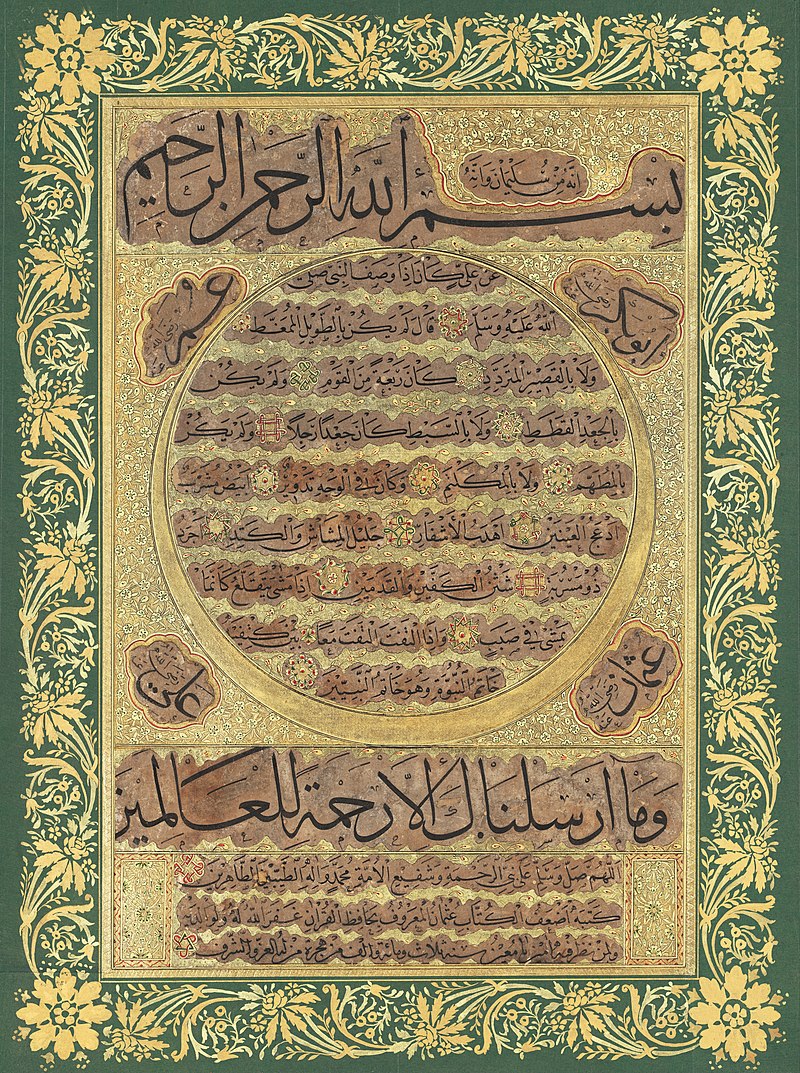 انه من سليمان وانه
بسم الله الرحمن الرحيم
ابوبكر رضي الله عنه
عمر رضي الله عنه
عن علي كان اذا وصف النبي صلى
الله عليه وسلم قال لم يكن بالطويل الممغط
ولا بالقصير المتردد كان ربعة من القوم ولم يكن
بالجعد القطط ولا بالسبط كان جعدا رجلا ولم يكن
بالمطهم ولا بالمكلثم وكان في الوجه تدوير ابيض مشرب
ادعج العينين اهدب الاشفار جليل المشاش والكتد اجرد
ذو مسربة شثن الكفين والقدمين اذا مشى تقلع كانما
يمشي في صبب واذا التفت التفت معا بين كتفيه
خاتم النبوة وهو خاتم النبيين
عثمان رضي الله عنه
علي رضي الله عنه
وما ارسلناك الا رحمة للعالمين
اللهم صل وسلم على نبي الرحمة وشفيع الامة محمد وآله الطيبين الطاهرين
كتبه اضعف الكتاب عثمان المعروف بحافظ القرآن غفر الله له ولوالديه
ولمن نظر فيه سنة ثلاث ومائة والف من هجرة من له العز والشرف